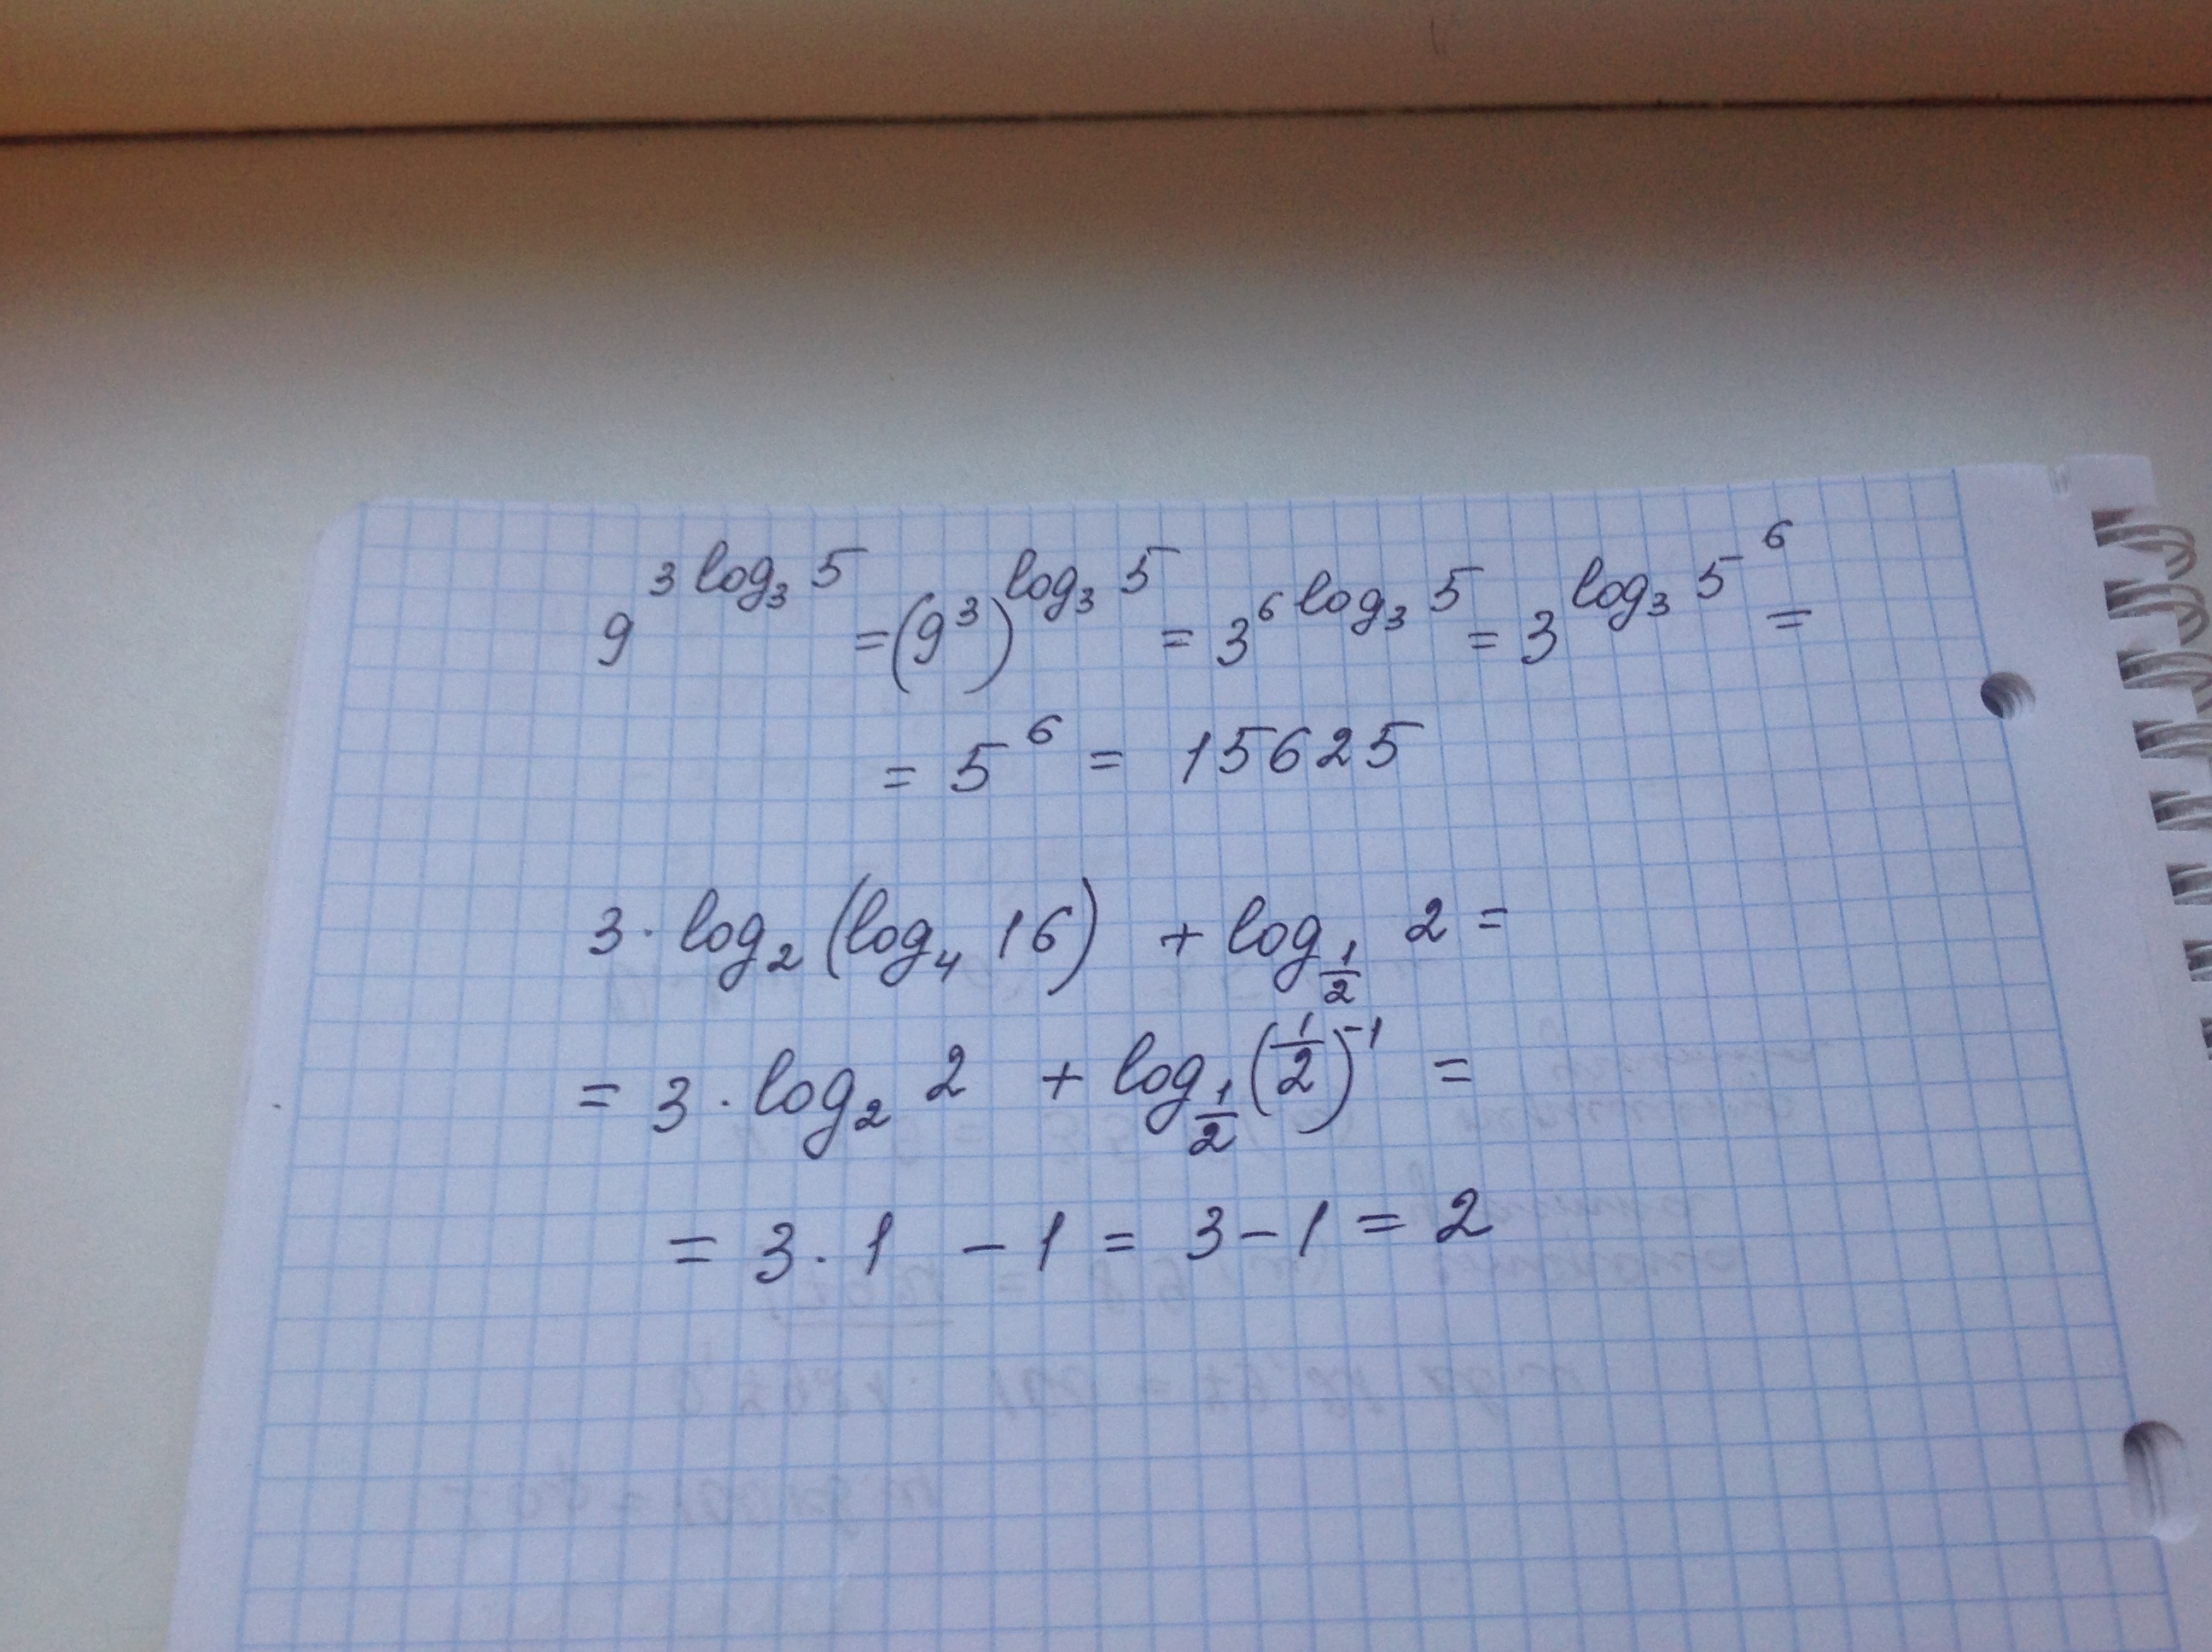 9^{3 log_3 5} = (9^3)^{log_3 5} = 3^{6 log_3 5} = 3^{log_3 5^6} =
= 5^6 = 15625
3 · log_2 (log_4 16) + log_{1/2} 2 =
= 3 · log_2 2 + log_{1/2} (1/2)^{-1} =
= 3 · 1 - 1 = 3 - 1 = 2